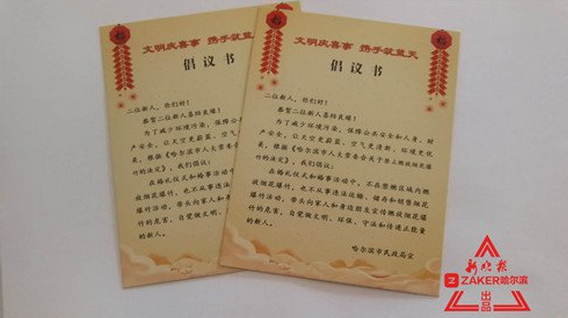 文明庆喜事 携手筑蓝
倡议书
二位新人，你们好！
恭贺二位新人喜结良缘！
为了减少环境污染，保障公
产安全，让天空更蔚蓝、空气更
美，根据《哈尔滨市人大常委会
竹的决定》，我们倡议：
在婚礼仪式和婚事活动中
放烟花爆竹，也不从事违法运
爆竹活动，带头向家人和身边
竹的危害，自觉做文明、环保
的新人。
文明庆喜事 携手筑蓝天
倡议书
二位新人，你们好！
恭贺二位新人喜结良缘！
为了减少环境污染，保障公共安全和人身、财
产安全，让天空更蔚蓝、空气更清新、环境更优
美，根据《哈尔滨市人大常委会关于禁止燃放烟花爆
竹的决定》，我们倡议：
在婚礼仪式和婚事活动中，不在禁燃区域内燃
放烟花爆竹，也不从事违法运输、储存和销售烟花
爆竹活动，带头向家人和身边朋友宣传燃放烟花爆
竹的危害，自觉做文明、环保、守法和传递正能量
的新人。
哈尔滨市民政局宣
新晚报
ZAKER哈尔滨
出品